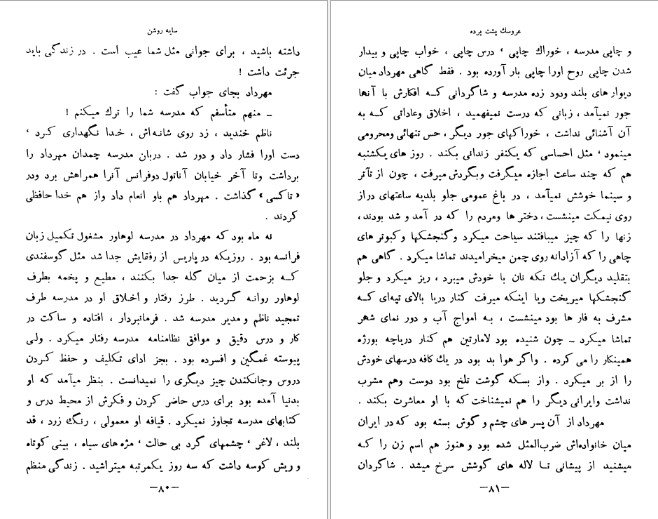 سایه روشن
داشته باشید ، برای جوانی مثل شما عیب است . در زندگی باید
جرئت داشت !
مهرداد بجای جواب گفت :
ــ منهم متأسفم که مدرسه شما را ترك میکنم !
ناظم خندید ، زد روی شانه‌اش ، خدا نگهداری کرد ،
دست اورا فشار داد و دور شد . دربان مدرسه چمدان مهرداد را
برداشت وتا آخر خیابان آناتول دوفرانس آنرا همراهش برد ودر
«تاکسی» گذاشت . مهرداد هم باو انعام داد واز هم خدا حافظی
کردند .
نه ماه بود که مهرداد در مدرسه لوهاور مشغول تکمیل زبان
فرانسه بود . روزیکه در پاریس از رفقایش جدا شد مثل گوسفندی
که بزحمت از میان گله جدا بکنند ، مطیع و پخمه بطرف
لوهاور روانه گردید . طرز رفتار و اخلاق او در مدرسه طرف
تمجید ناظم و مدیر مدرسه شد . فرمانبردار ، افتاده و ساکت در
کار و درس دقیق و موافق نظامنامه مدرسه رفتار میکرد . ولی
پیوسته غمگین و افسرده بود . بجز ادای تکلیف و حفظ کردن
دروس وجانکندن چیز دیگری را نمیدانست . بنظر میآمد که او
بدنیا آمده بود برای درس حاضر کردن و فکرش از محیط درس و
کتابهای مدرسه تجاوز نمیکرد . قیافه او معمولی ، رنگ زرد ، قد
بلند ، لاغر ، چشمهای گرد بی حالت ، مژه های سیاه ، بینی کوتاه
و ریش کوسه داشت که سه روز یکمرتبه میتراشید . زندگی منظم
ــ۸۰ــ
عروسك پشت پرده
و چاپی مدرسه ، خوراك چاپی ، درس چاپی ، خواب چاپی و بیدار
شدن چاپی روح اورا چاپی بار آورده بود . فقط گاهی مهرداد میان
دیوار های بلند ودود زده مدرسه و شاگردانی که افکارش با آنها
جور نمیآمد ، زبانی که درست نمیفهمید ، اخلاق وعاداتی که به
آن آشنائی نداشت ، خوراکهای جور دیگر ، حس تنهائی ومحرومی
مینمود ، مثل احساسی که یکنفر زندانی بکند . روز های یکشنبه
هم که چند ساعت اجازه میگرفت وبگردش میرفت ، چون از تآتر
و سینما خوشش نمیآمد ، در باغ عمومی جلو بلدیه ساعتهای دراز
روی نیمکت مینشست ، دختر ها ومردم را که در آمد و شد بودند،
زنها را که چیز میبافتند سیاحت میکرد وگنجشکها وکبوتر های
چاهی را که آزادانه روی چمن میخرامیدند تماشا میکرد . گاهی هم
بتقلید دیگران یك تکه نان با خودش میبرد ، ریز میکرد و جلو
گنجشکها میریخت ویا اینکه میرفت کنار دریا بالای تپه‌ای که
مشرف به فار ها بود مینشست ، به امواج آب و دور نمای شهر
تماشا میکرد ــ چون شنیده بود لامارتین هم کنار دریاچه بورژه
همینکار را می کرده . واگر هوا بد بود در یك کافه درسهای خودش
را از بر میکرد . واز بسکه گوشت تلخ بود دوست وهم مشرب
نداشت وایرانی دیگر را هم نمیشناخت که با او معاشرت بکند .
مهرداد از آن پسر های چشم و گوش بسته بود که در ایران
میان خانواده‌اش ضرب‌المثل شده بود و هنوز هم اسم زن را که
میشنید از پیشانی تا لاله های گوشش سرخ میشد . شاگردان
ــ۸۱ــ